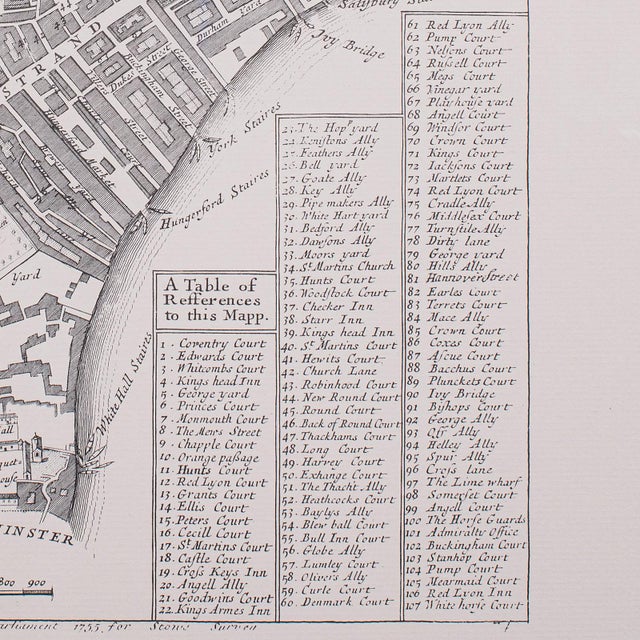 Salysbury Stai
Ivy Bridge
Durham Yard
STRAND
George Street
Buckingham Street
Dukes Street
Villers Street
York Staires
Hungerford Market
Hungerford Staires
Yard
White Hall Staires
all
quet
ouse
MINSTER
800 900
A Table of
Refferences
to this Mapp.
1 . Coventry Court
2 . Edwards Court
3 . Whitcombs Court
4 . Kings head Inn
5 . George yard
6 . Princes Court
7 . Monmouth Court
8 . The Mews Street
9 . Chapple Court
10 . Orange passage
11 . Hunts Court
12 . Red Lyon Court
13 . Grants Court
14 . Ellis Court
15 . Peters Court
16 . Cecill Court
17 . St. Martins Court
18 . Castle Court
19 . Cross Keys Inn
20 . Angell Ally
21 . Goodwins Court
22 . Kings Armes Inn
23 . The Hop yard
24 . Kenistons Ally
25 . Feathers Ally
26 . Bell yard
27 . Goate Ally
28 . Key Ally
29 . Pipe makers Ally
30 . White Hart yard
31 . Bedford Ally
32 . Dawsons Ally
33 . Moors yard
34 . St. Martins Church
35 . Hunts Court
36 . Woodstock Court
37 . Checker Inn
38 . Starr Inn
39 . Kings head Inn
40 . St. Martins Court
41 . Hewits Court
42 . Church Lane
43 . Robinhood Court
44 . New Round Court
45 . Round Court
46 . Back of Round Court
47 . Thackhams Court
48 . Long Court
49 . Harvey Court
50 . Exhange Court
51 . The Thacht Ally
52 . Heathcocks Court
53 . Baylys Ally
54 . Blew ball Court
55 . Bull Inn Court
56 . Globe Ally
57 . Lumley Court
58 . Olivers Ally
59 . Curle Court
60 . Denmark Court
61 Red Lyon Ally
62 Pump Court
63 Nelsons Court
64 Russell Court
65 Megs Court
66 Vinegar yard
67 Playhouse yard
68 Angell Court
69 Windsor Court
70 Crown Court
71 Kings Court
72 Iacksons Court
73 Martlets Court
74 Red Lyon Court
75 Cradle Ally
76 Middlesex Court
77 Turnstile Ally
78 Dirty lane
79 George yard
80 Hills Ally
81 Hannover Street
82 Earles Court
83 Terrets Court
84 Mace Ally
85 Crown Court
86 Coxes Court
87 Ascue Court
88 Bacchus Court
89 Plunckets Court
90 Ivy Bridge
91 Bishops Court
92 George Ally
93 Ally
94 Helley Ally
95 Spur Ally
96 Cross lane
97 The Lime wharf
98 Somerset Court
99 Angell Court
100 The Horse Guards
101 Admiralty Office
102 Buckingham Court
103 Stanhop Court
104 Pump Court
105 Mearmaid Court
106 Red Lyon Inn
107 White horse Court
arliament 1755, for Stows Survey